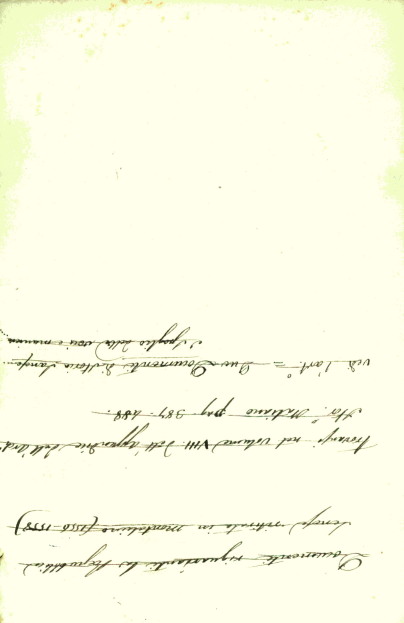 Documenti riguardanti la Repubblica
Senese ritirata in Montalcino (1555 1559)
Trovansi nel volume VIII dell'appendice dell'Arch
Sto. Italiano pag. 387. 488.
ved. l'art.° = Due Documenti di Storia Sanese
Spoglio delle voci e maniere